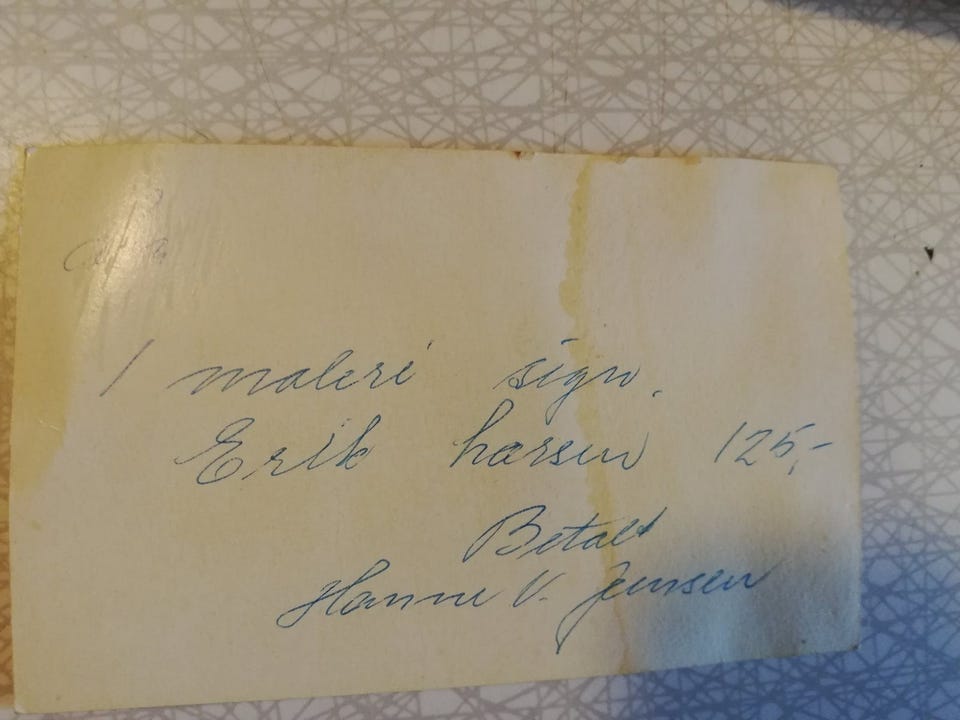 1 maleri sign.
Erik Larsen 125,-
Betalt
Hanne V. Jensen